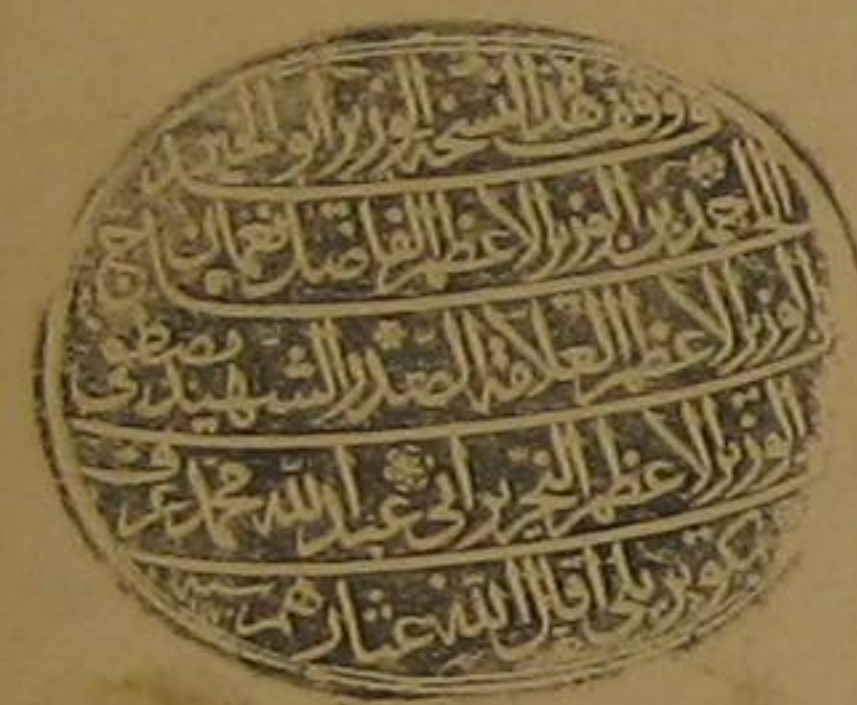 وقف هذه النسخة الوزير ابو الخير
الحاج احمد بن الوزير الاعظم الفاضل نعمان بن
الوزير الاعظم العلامة الصدر الشهيد مصطفى
الوزير الاعظم النحرير ابي عبد الله محمد عرف
بكوبريلي اقال الله عثارهم